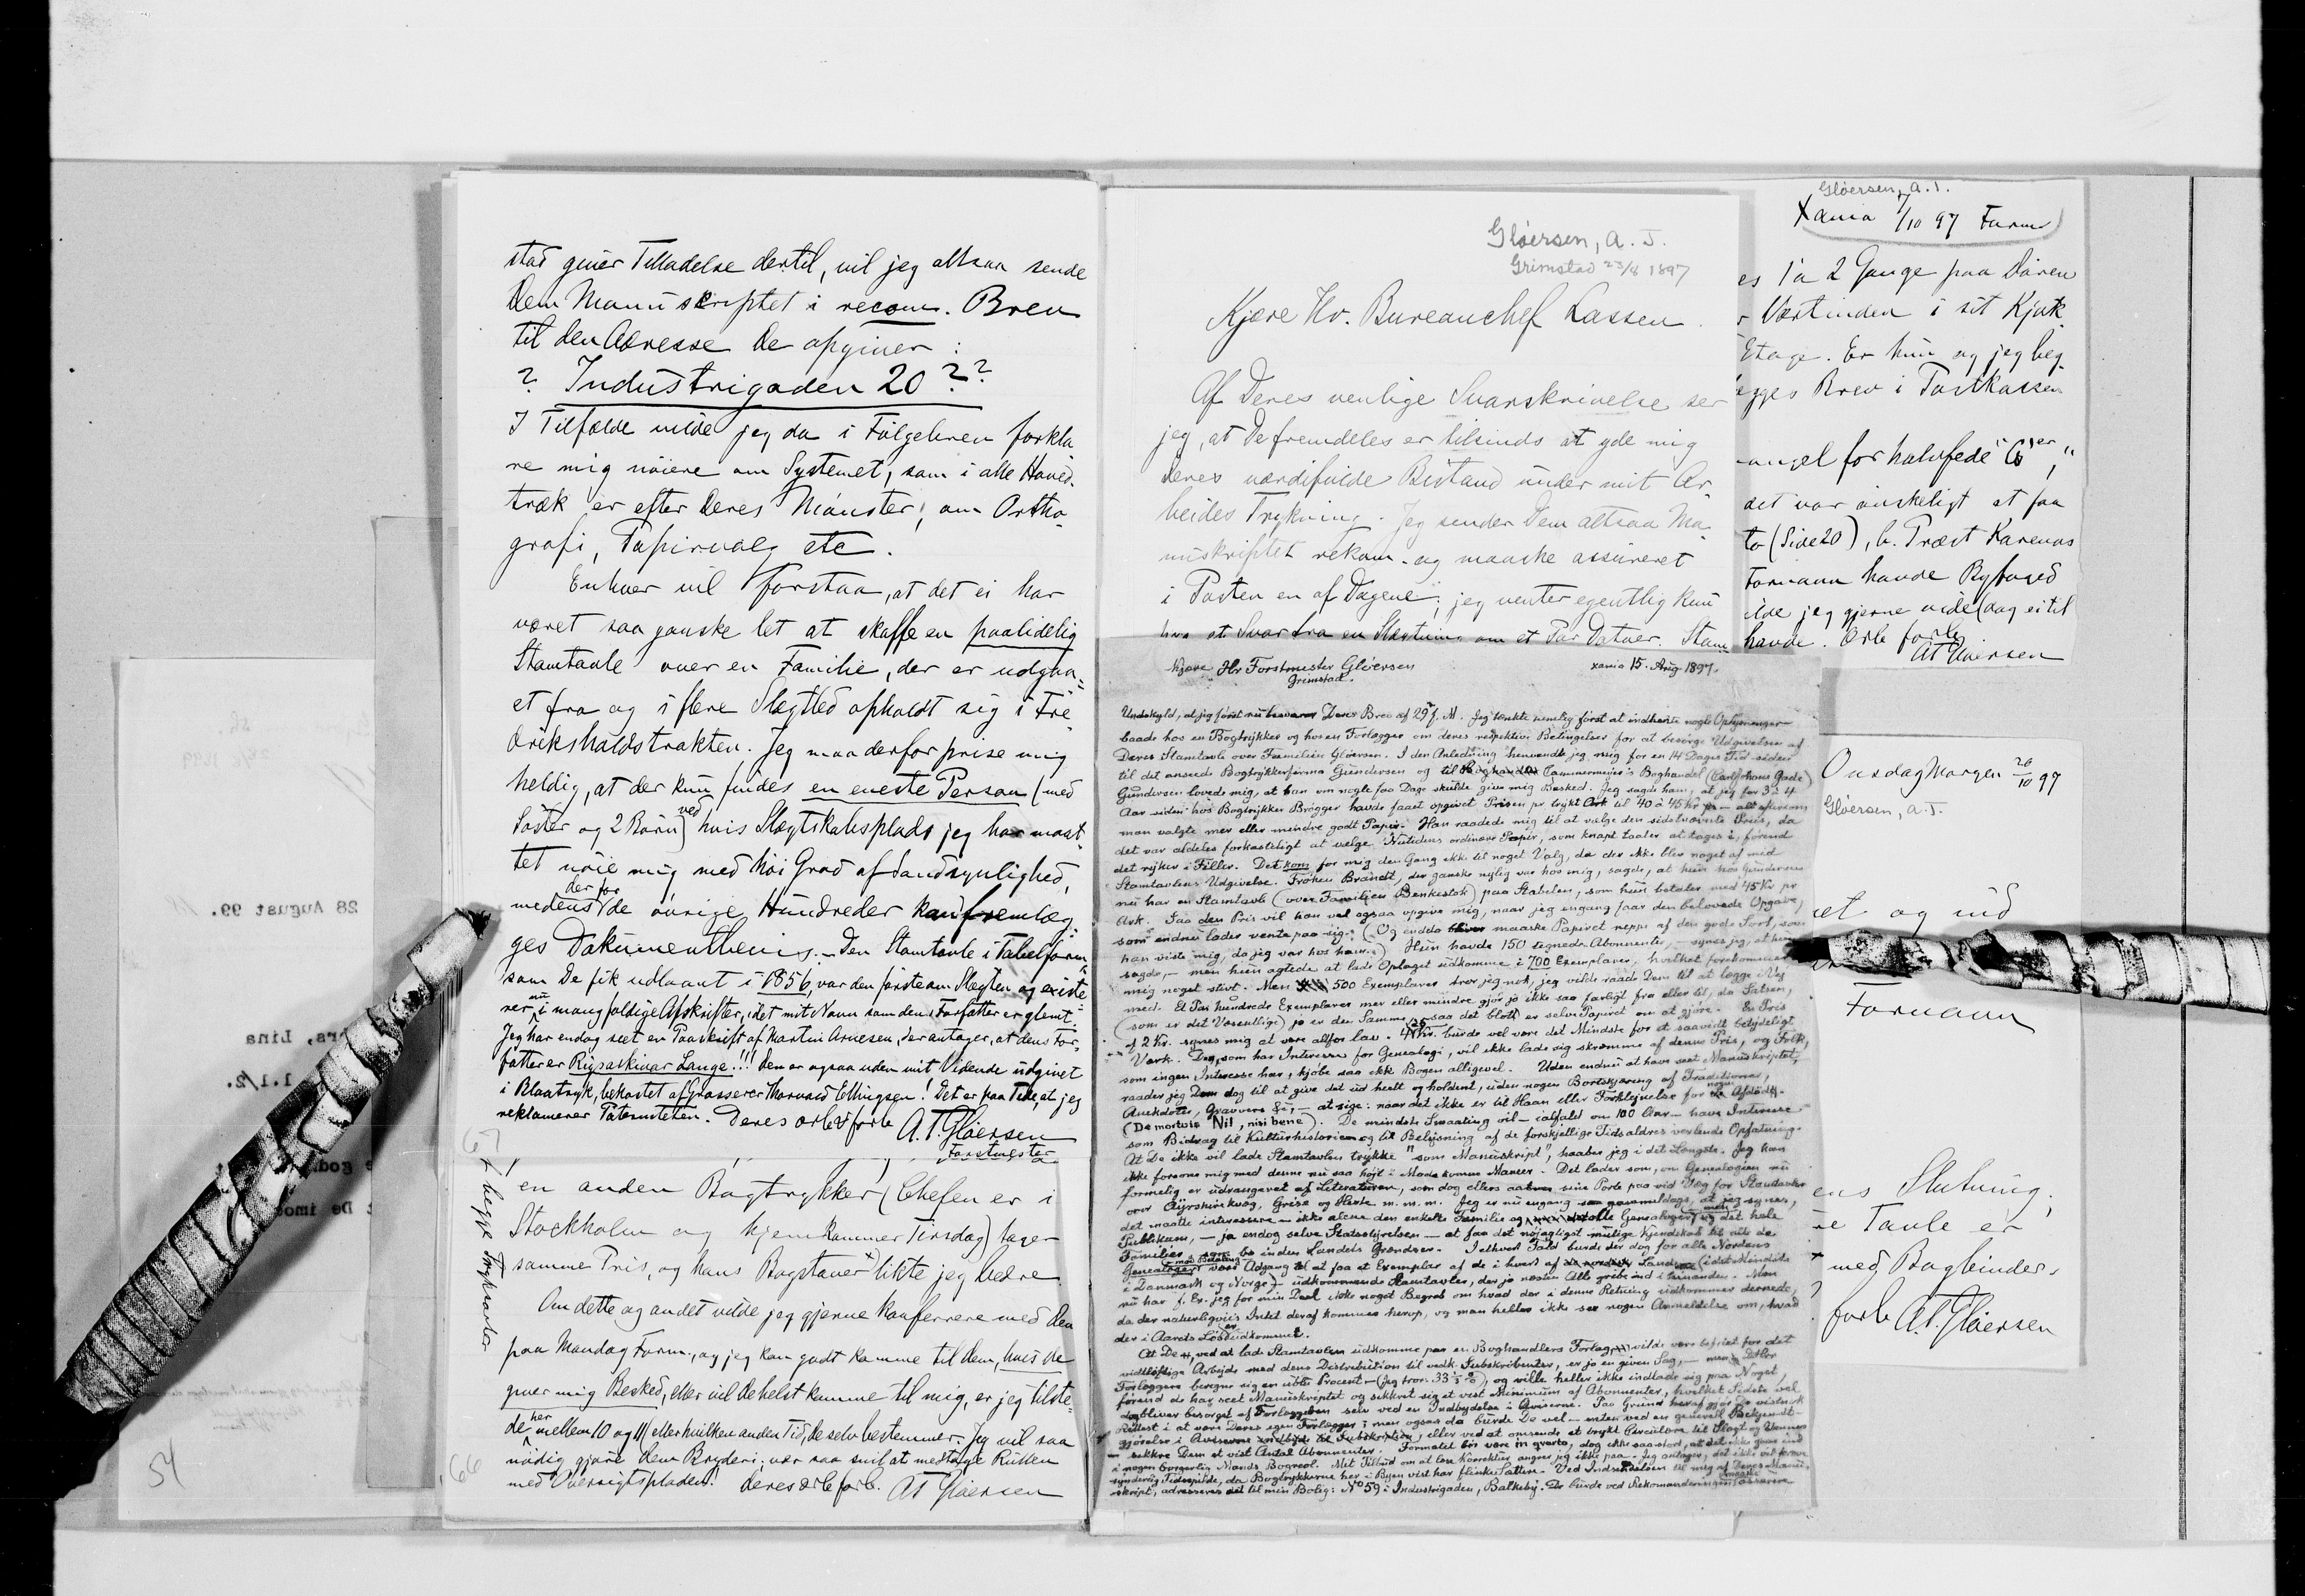 stad giver Tilladelse dertil, vil jeg altsaa sende
Dem Manuskriptet i recom. Brev
til den Adresse De opgiver :
? Industrigaden 20 ??
I Tilfælde vilde jeg da i Følgebrev forkla
re mig nöiere om Systemet, som i alle Hoved-
træk er efter Deres Mönster, om Ortho-
grafi, Papirvalg etc.
Enhver vil forstaa, at det ei har
været saa ganske let at skaffe en paalidelig
Stamtavle over en Familie, der er udgaa-
et fra og i flere Slægtled opholdt sig i Fre
drikshaldstrakten. Jeg maa derfor prise mig
heldig, at der kun findes en eneste Person (med
Söster og 2 Børn) ved hvis Slægtskabsplads jeg har maat-
tet nöie mig med höi Grad af Sandsynlighed,
medens der for de övrige Hundreder kan fremlæg-
ges Dokumentbevis. - Den Stamtavle i Tabelform
som De fik udlaant i 1856, var den förste om Slægten og existe-
rer nu i mangfoldige Afskrifter, idet mit Navn som dens Forfatter er glemt.
Jeg har endog seet en Paaskrift af Martin Arnesen, der antager, at dens For-
fatter er Rigsarkivar Lange!!! Den er ogsaa uden mit Vidende udgivet
i Blaatryk, bekostet af Grosserer Thorvald Ellingsen! Det er paa Tide, at jeg
reklamerer Paterniteten. Deres ærb. forb.
A. T. Glöersen
Forstmester
67
x begge Trykkarter
en anden Bogtrykker (Chefen er i
Stockholm og hjemkommer Tirsdag) tager
samme Pris, og hans Bogstaver x) likte jeg bedre
Om dette og andet vilde jeg gjerne konferrere med Dem
paa Mandag Form., og jeg kan godt komme til Dem, hvis De
giver mig Besked, eller vil De helst komme til mig, er jeg tilste-
de her mellem 10 og 11 (eller hvilken anden Tid, De selv bestemmer. Jeg vil saa
nödig gjøre Dem Bryderi; vær saa snil at medtage Rullen
med Oversigtspladen! Deres ærb. forb. AT Glöersen
66
Glöersen, A. T.
Grimstad 23/8 1897
Kjære Hr. Bureauchef Lassen.
Af Deres venlige Svarskrivelse ser
jeg, at De fremdeles er tilsinds at yde mig
Deres værdifulde Bistand under mit Ar-
beides Trykning. Jeg sender Dem altsaa Ma-
nuskriptet rekom. og maaske assureret
i Posten en af Dagene; jeg venter egentlig kun
paa et Svar fra en Slægtning om et Par Datoer. Stam
Kjære Hr Forstmester Glöersen
Grimstad.
Xania 15. Aug 1897.
Undskyld, at jeg först nu besvarer Deres Brev af 29 f. M. Jeg tænkte nemlig först at indhente nogle Oplysninger
baade hos en Bogtrykker og hos en Forlægger om deres respektive Betingelser for at besörge Udgivelsen af
Deres Stamtavle over Familien Glöersen. I den Anledning henvendte jeg mig for en 14 Dages Tid siden
til det ansete Bogtrykkerfirma Gundersen og til Cammermeyer's Boghandel (Carl Johans Gade)
Gundersen lovede mig, at han om nogle faa Dage skulde give mig Besked. Jeg sagde ham, at jeg for 3 à 4
Aar siden hos Bogtrykker Brögger havde faaet opgivet Prisen pr trykt Ark til 40 à 45 Kr - alt eftersom
man valgte mer eller mindre godt Papir. Han raadede mig til at vælge den sidstnævnte Pris, da
det var aldeles forkasteligt at vælge Nutidens ordinære Papir, som knapt taaler at tages i, förend
det ryker i Filler. Det kom for mig den Gang ikke til noget Valg, da der ikke blev noget af med
Stamtavlens Udgivelse. Fröken Brandt, der ganske nylig var hos mig, sagde, at hun hos Gundersen
nu har en Stamtavle (over Familien Benkestok) paa Stabelen, som hun betaler med 45 Kr pr
Ark. Saa den Pris vil han vel ogsaa opgive mig, naar jeg engang faar den belovede Opgave,
som endnu lader vente paa sig. (Og endda maaske Papiret neppe af den gode Sort, som
han viste mig, da jeg var hos ham.) Hun havde 150 tegnede Abonnenter, - synes jeg, at hun
sagde, - men hun agtede at lade Oplaget udkomme i 700 Exemplarer, hvilket forekommer
mig noget stivt. Men 500 Exemplarer tror jeg nok, jeg vilde raade Dem til at lægge i Vej
med. Et Par hundrede Exemplarer mer eller mindre gjör jo ikke saa farligt fra eller til, da Satsen,
(som er det Væsentlige) jo er den Samme, saa det blott er selve Papiret om at gjöre. En Pris
af 2 Kr. synes mig at være altfor lav. 4 Kr. burde vel være det Mindste for et saavidt betydeligt
Værk. Den, som har Interesse for Genealogi, vil ikke lade sig skræmme af denne Pris, og Folk,
som ingen Interesse har, kjöbe saa ikke Bogen alligevel. Uden endnu at have seet Manuskriptet,
raader jeg Dem dog til at give det ud heelt og holdent, uden nogen Bortskjæring af Traditioner,
Anekdoter, Gravvers &c, - at sige: naar det ikke er til Haan eller Forklejnelse for nogen Afdöd.
(De mortuis Nil, nisi bene). De mindste Smaating vil - ialfald om 100 Aar - have Interesse
som Bidrag til Kulturhistorien og til Belysning af de forskjellige Tidsaldres vexlende Opfatning.
At De ikke vil lade Stamtavlen trykke "som Manuskript", haaber jeg i det Længste. Jeg kan
ikke forsone mig med denne nu saa højt i Mode komne Maneer. Det lader som, om Genealogien nu
formelig er udrangeret af Literaturen, som dog ellers aabner sine Porte paa vid Væg for Stamtavler
over Ayrshirekvæg, Grise og Heste m. m. m. Jeg er nu engang saa gammeldags, at jeg synes,
det maatte interessere - ikke alene den enkelte Familie og alle Genealoger, men og det hele
Publikum, - ja endog selve Statsstyrelsen - at faa det nöjagtigst mulige Kjendskab til alle de
Familier, som bo inden Landets Grændser. I ethvert Fald burde der dog for alle Nordens
Genealoger mod Betaling være Adgang til at faa et Exemplar af de i hvert af Landene (idetmindste
i Danmark og Norge) - udkommende Stamtavler, der jo næsten Alle gribe ind i hinanden. Men
nu har f. Ex. jeg for min Deel ikke noget Begreb om hvad der i denne Retning udkommer dernede,
da der naturligviis Intet deraf kommer herop, og man heller ikke ser nogen Anmeldelse om, hvad
der i Aarets Löb er udkommet.
At De, ved at lade Stamtavlen udkomme paa en Boghandlers Forlag, vilde være befriet for det
vidtlöftige Arbejde med dens Distribution til vedk. Subskribenter, er jo en given Sag, - men
Forlæggere beregne sig en ublu Procent - (jeg tror 33 1/3 %) og ville heller ikke indlade sig paa Noget,
förend de har seet Manuskriptet og sikkret sig et vist Minimum af Abonnenter, hvilket Sidste vel
dog bliver besörget af Forlæggeren selv ved en Indbydelse i Aviserne. Paa Grund heraf gjör De vistnok
Rettest i at være Deres egen Forlægger; men ogsaa da burde De vel - enten ved en generell Bekjendt-
gjörelse i Aviserne, eller ved at omsende et trykt Circulære til Slægt og Venner
- sikkre Dem et vist Antal Abonnenter. Formatet bör være in qvarto, dog ikke saa stort, at det ikke gaar ind
i nogen borgerlig Mands Bogreol. Mit Tilbud om at læse Korrektur angrer jeg ikke paa. Jeg antager, det ikke vil forvolde
synderlig Tidsspilde, da Bogtrykkerne her i Byen vist har flinke Sættere. Ved Indsendelsen til mig af Deres Manu-
skript, adresseres det til min Bolig: No 59 i Industrigaden, Balkeby. De burde ved Rekomanderingen maaske assurere
Glöersen, A. T.
Xania 7/10 97 Form
es 1 à 2 Gange paa Dören
r Værtinden i sit Kjøk
Etage. Er hun og jeg beg
ægges Brev i Postkassen
angel for halvfede "G'er"
det var önskeligt at faa
to (Side 20), b. Præst Karenus
Formann havde Byfoged
ilde jeg gjerne vide (dog ei til
havde. Ærb forb
AT Glöersen
Onsdag Morgen 20/10 97
Glöersen, A. T.
et og ind
Formann
ens Slutning.
re Tavle er
med Bogbinder
forb A. T. Glöersen
28 August 99.
rs, Lina
1.1/2.
e god
t De imod
54